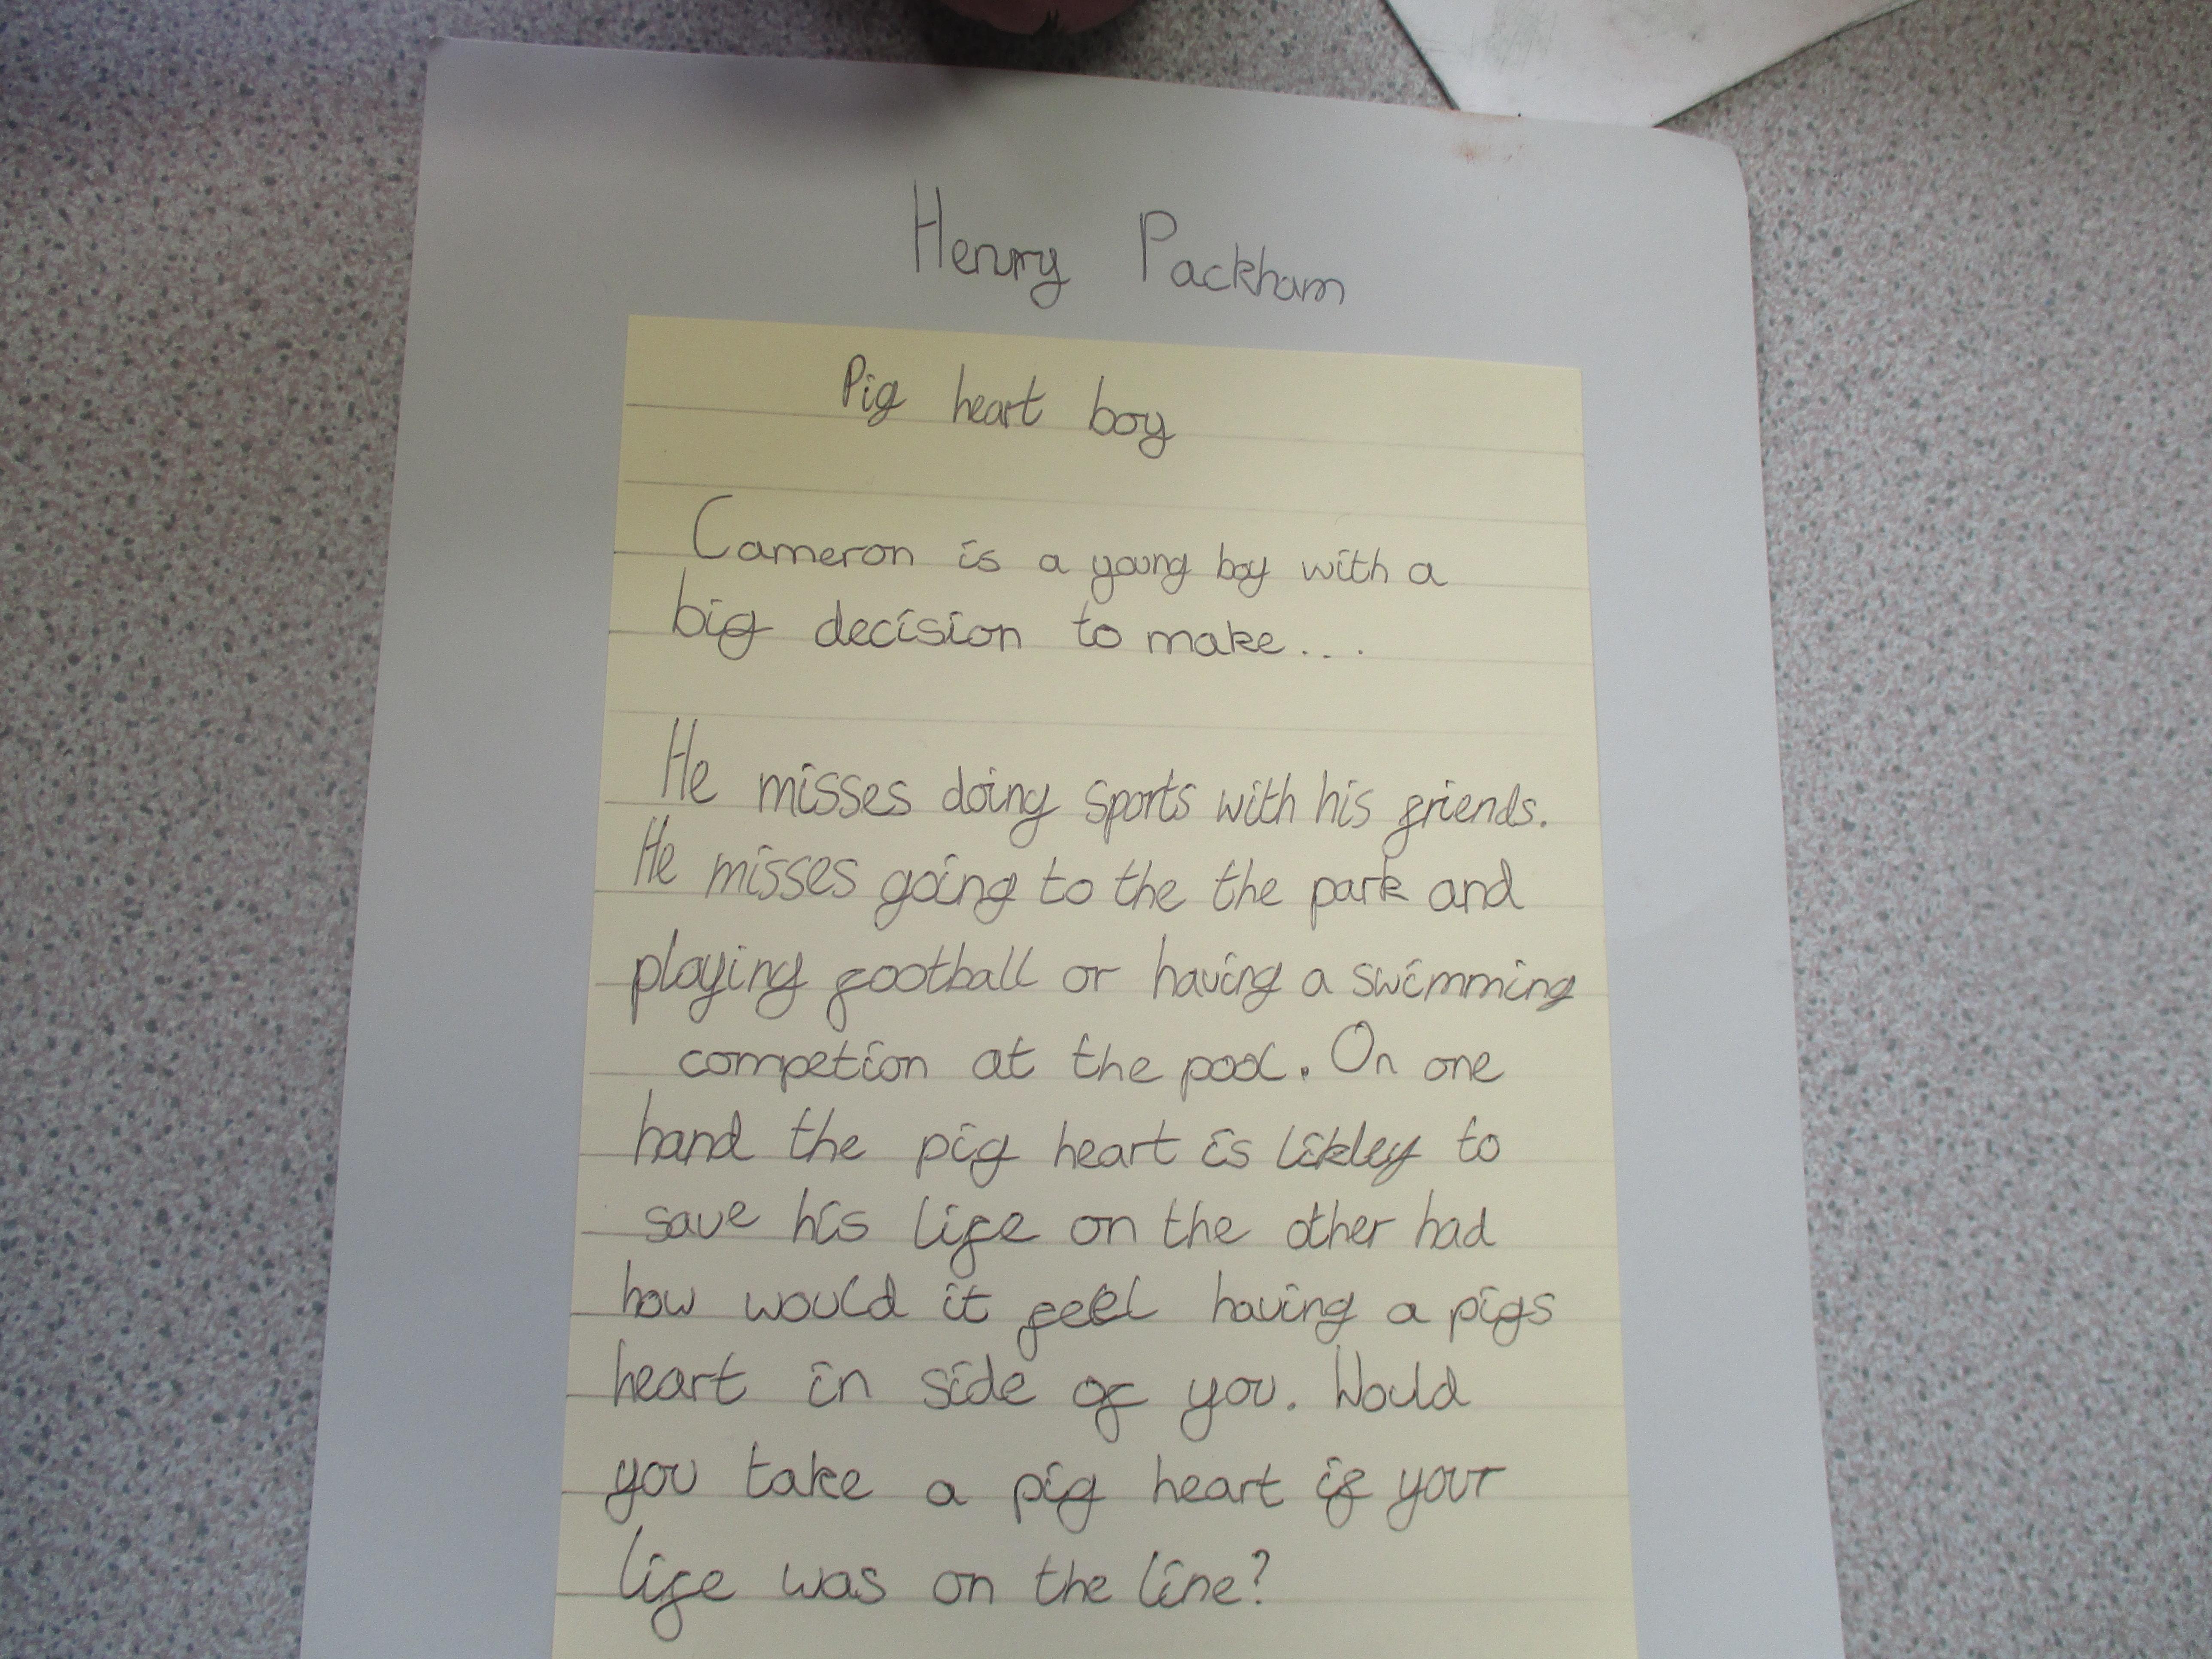 Henry Packham
Pig heart boy
Cameron is a young boy with a
big decision to make...
He misses doing sports with his friends.
He misses going to the the park and
playing football or having a swimming
competion at the pool. On one
hand the pig heart is likley to
save his life on the other had
how would it feel having a pigs
heart in side of you. Would
you take a pig heart if your
life was on the line?